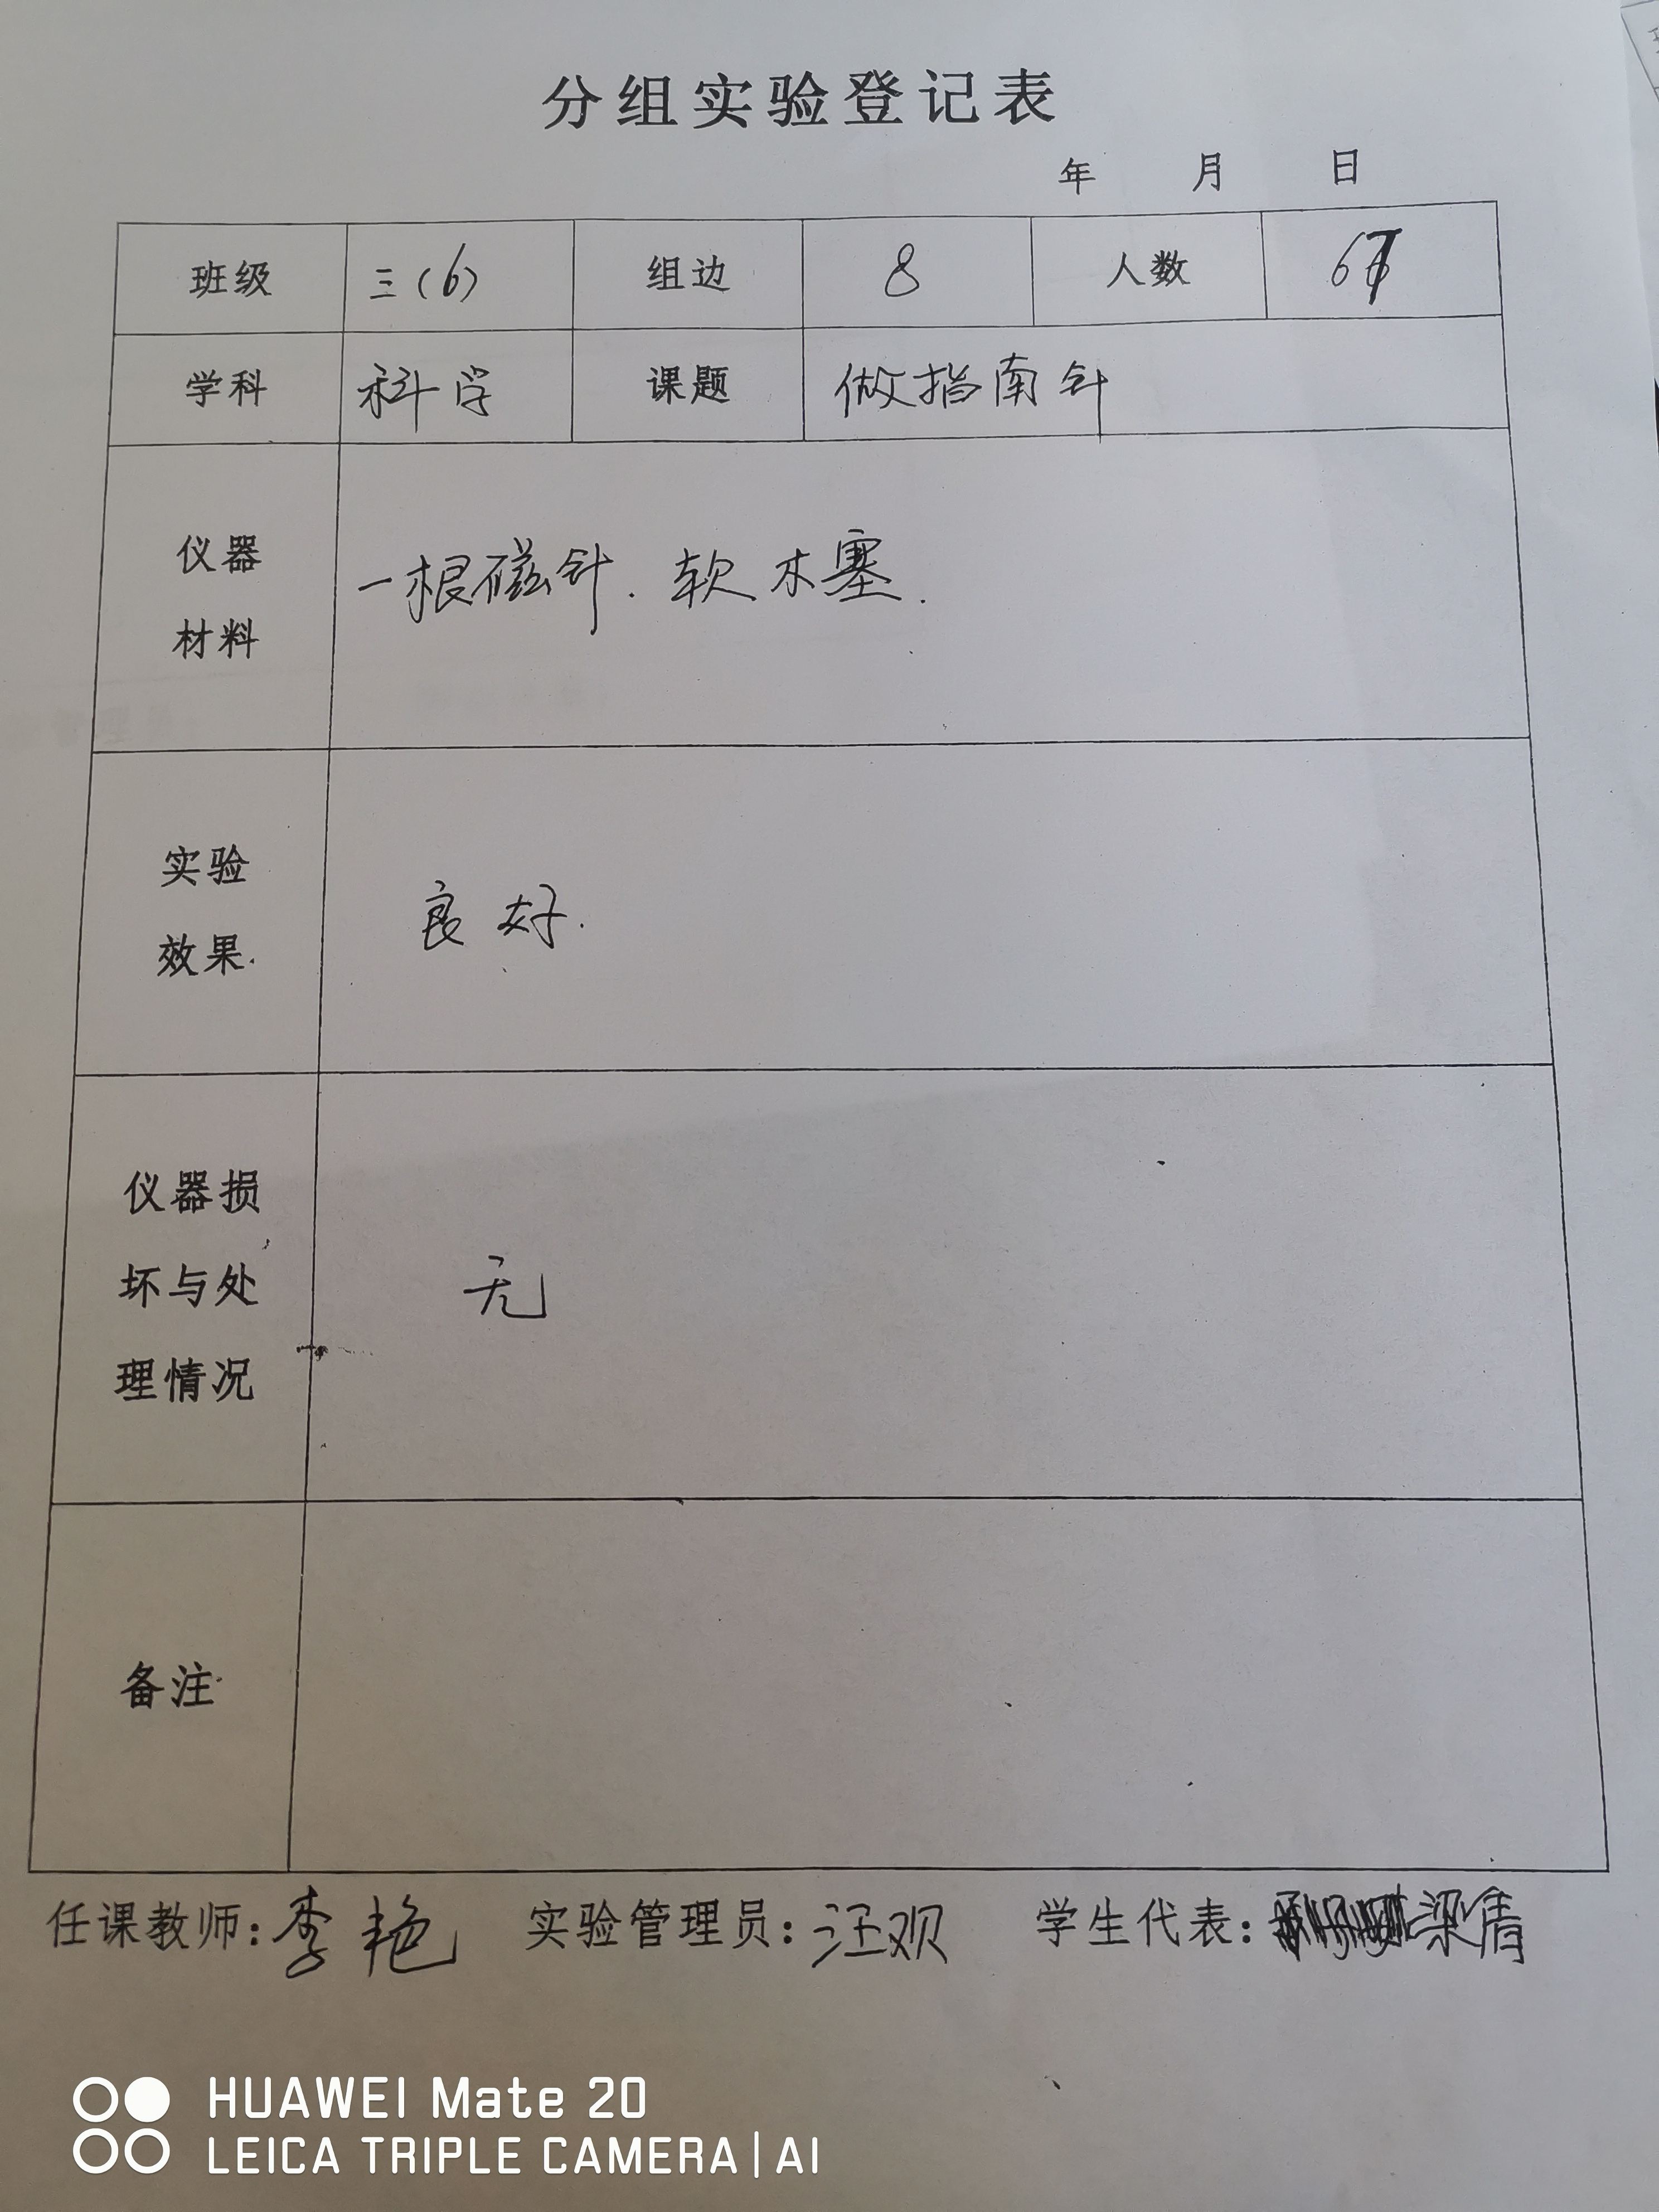 分组实验登记表
年 月 日
班级 三(6) 组边 8 人数 67
学科 科学 课题 做指南针
仪器
材料
一根磁针. 软木塞.
实验
效果
良好.
仪器损
坏与处
理情况
无
备注
任课教师:李艳 实验管理员:汪欢 学生代表:梁倩
HUAWEI Mate 20
LEICA TRIPLE CAMERA|AI